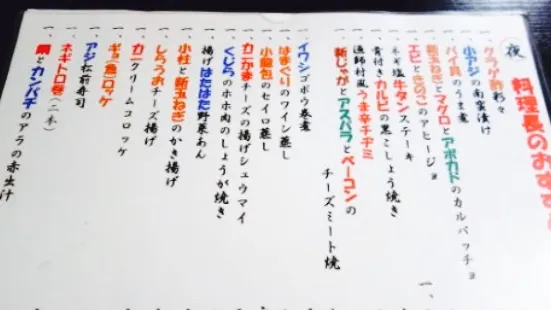 料理長のおすす
夜
一、クラゲ酢彩々
一、小アジの南蛮漬け
一、バイ貝のうま煮
一、新玉ねぎとマグロとアボカドのカルパッチョ
一、エビときのこのアヒージョ
一、ネギ塩牛タンステーキ
一、骨付きカルビの黒こしょう焼き
一、漁師村風うま辛チヂミ
一、新じゃがとアスパラとベーコンの
チーズミート焼
一、イワシゴボウ巻煮
一、はまぐりのワイン蒸し
一、小籠包のセイロ蒸し
一、カニかまチーズの揚げシュウマイ
一、くじらのホホ肉のしょうが焼き
一、揚げはたはた野菜あん
一、小柱と新玉ねぎのかき揚げ
一、しらうおチーズ揚げ
一、カニクリームコロッケ
一、ギョ(魚)ロッケ
一、アジ松前寿司
一、ネギトロ巻(二本)
一、鯛とカンパチのアラの赤出汁
一、